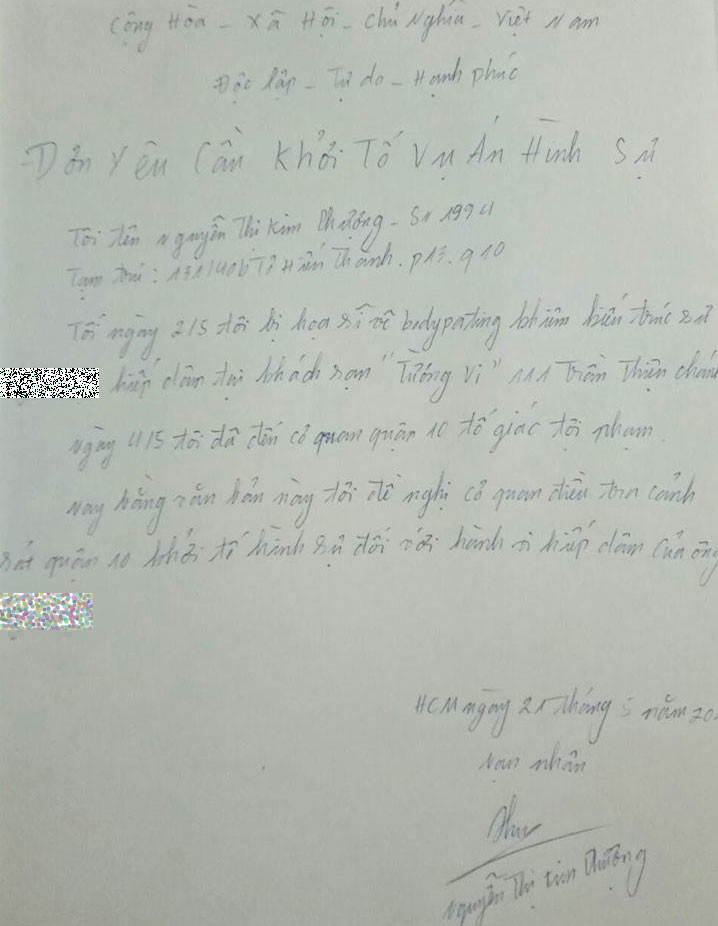 Cộng Hòa - Xã Hội - Chủ Nghĩa - Việt Nam
Độc lập - Tự do - Hạnh phúc
Đơn Yêu Cầu Khởi Tố Vụ Án Hình Sự
Tôi tên Nguyễn Thị Kim Phượng - SN 1994
Tạm trú: 131/40b Tô Hiến Thành. p13. q10
Tối ngày 2/5 tôi bị họa sĩ vẽ bodypating khiêm kiến trúc sư
hiếp dâm tại khách sạn "Tường Vi" 111 Trần Thiện chánh
ngày 4/5 tôi đã đến cơ quan quận 10 tố giác tội phạm
nay bằng văn bản này tôi đề nghị cơ quan điều tra cảnh
sát quận 10 khởi tố hình sự đối với hành vi hiếp dâm của ông
HCM ngày 21 tháng 5 năm 20
nạn nhân
Nguyễn Thị Kim Phượng